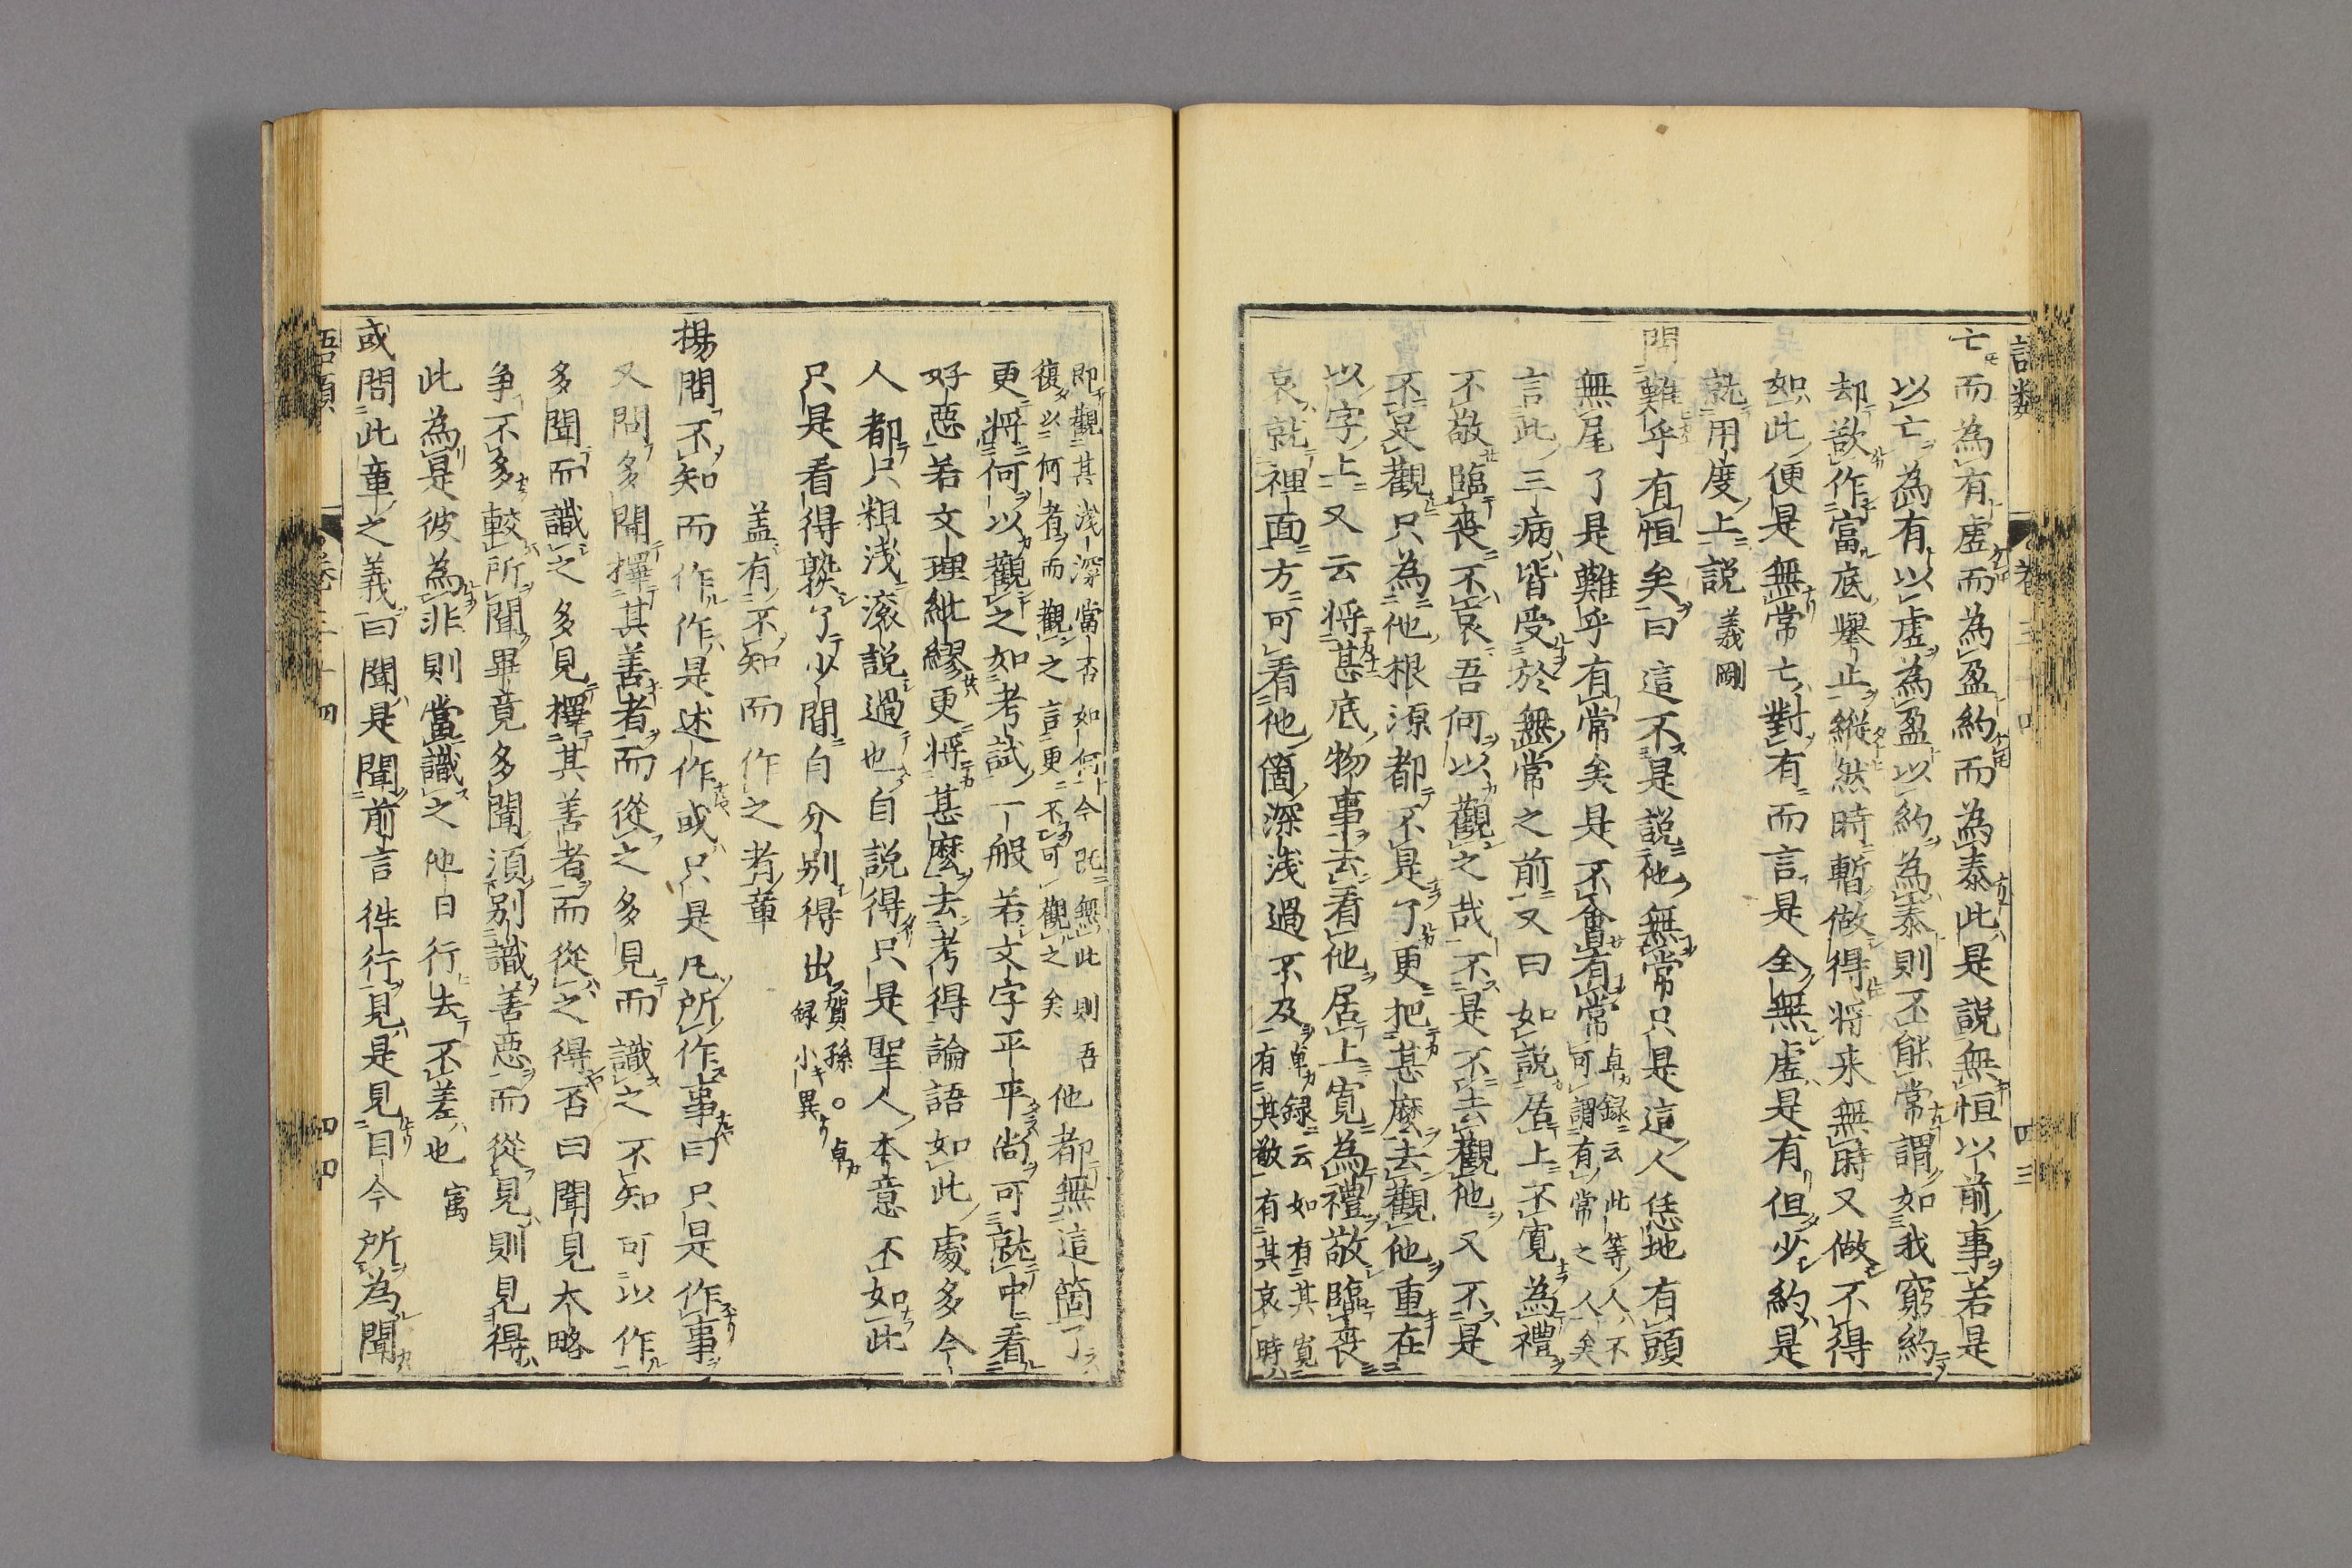 語類
卷三十四
四三
亡而為有虛而為盈約而為泰此是說無恒以前事若是
以亡為有以虛為盈以約為泰則不能常謂如我窮約
却欲作富底舉止縱然時暫做得将来無時又做不得
如此便是無常亡對有而言是全無虛是有但少約是
就用度上說 義剛
問難乎有恒矣曰這不是說他無常只是這人恁地有頭
無尾了是難乎有常矣是不會有常 卓録云此等人不
可謂有常之人矣
言此三病皆受於無常之前又曰如說居上不寬為禮
不敬臨喪不哀吾何以觀之哉不是不去觀他又不是
不足觀只為他根源都不是了更把甚麼去觀他重在
以字上又云将甚底物事去看他居上寬為禮敬臨喪
哀就裡面方可看他箇深淺過不及 卓録云如有其寛
有其敬有其哀時
即觀其淺深當否如何今既無此則吾
復以何者而觀之言更不可觀之矣
他都無這箇了
更将何以觀之如考試一般若文字平平尚可就中看
好惡若文理紕繆更将甚麼去考得論語如此處多今
人都只粗淺滚說過也自說得只是聖人本意不如此
只是看得熟了少間自分别得出 賀孫○卓
録小異
盖有不知而作之者章
楊問不知而作作是述作或只是凡所作事曰只是作事
又問多聞擇其善者而從之多見而識之不知可以作
多聞而識之多見擇其善者而從之得否曰聞見太略
争不多較所聞畢竟多聞須别識善惡而從見則見得
此為是彼為非則當識之他日行去不差也 㝢
或問此章之義曰聞是聞前言徃行見是見目今所為聞
語類
卷三十四
四四